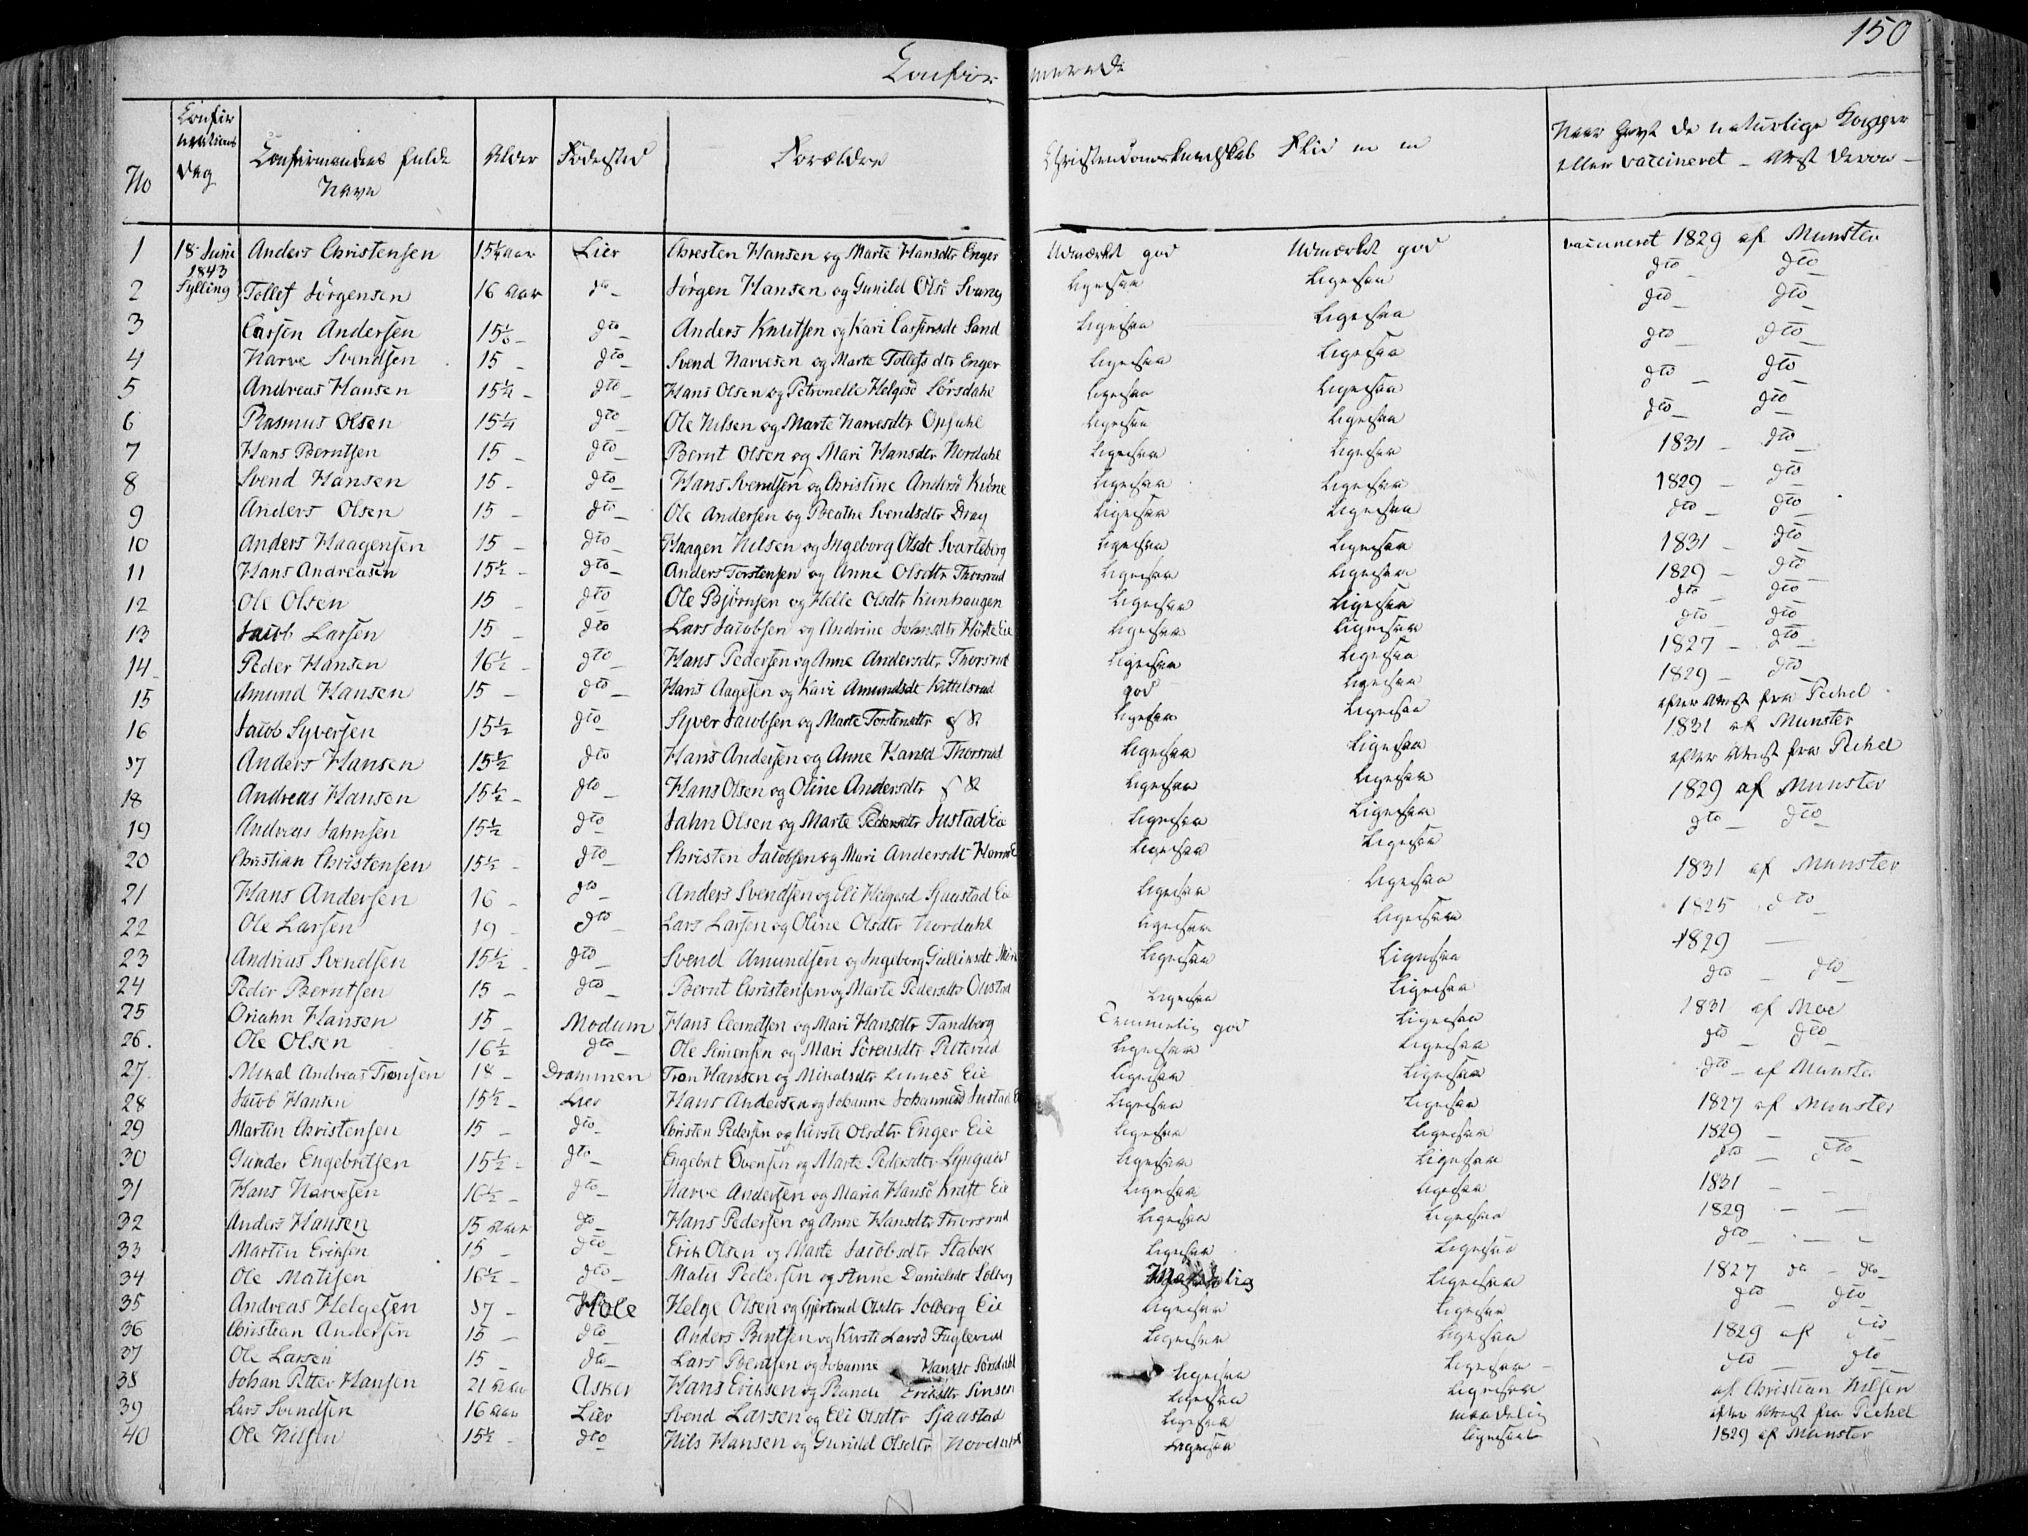 150
Confir merede
No
Confirmations Dag
Confirmandens fulde Navn
Alder
Fødested
Forældre
Christendomskundskab Flid m m
Naar havt de naturlige Kopper eller vaccineret – Attest derom –
1 18 Juni 1843 Sylling Anders Christensen 15¼ aar Lier Christen Hansen og Marte Hansdtr Enger Udmærket god Udmærket god vaccineret 1829 af Munster
2 Tollef Jørgensen 16 aar dto – Jørgen Hansen og Gunild Olsd Svang Ligesaa Ligesaa dto – dto
3 Carsen Andersen dto – Anders Knutsen og Kari Carsensdt Sand Ligesaa Ligesaa dto – dto
4 Narve Svendsen 15 – dto – Svend Narvesen og Marte Tollefsdtr Enger Ligesaa Ligesaa dto – dto –
5 Andreas Hansen 15¼ – dto – Hans Olsen og Petronelle Helgesd Sørsdahl Ligesaa Ligesaa dto – dto –
6 Rasmus Olsen 15¼ dto – Ole Nilsen og Marte Narvesdtr Opsahl Ligesaa Ligesaa dto – dto –
7 Hans Berntsen 15 – dto – Bernt Olsen og Mari Hansdtr Nordahl Ligesaa Ligesaa 1831 – dto –
8 Svend Hansen 15 – dto – Hans Svendsen og Christine Andersd Ligesaa Ligesaa 1829 – dto –
9 Anders Olsen 15 – dto – Ole Andersen og Beathe Svendsdtr Drag Ligesaa Ligesaa dto – dto –
10 Anders Haagensen 15 – dto – Haagen Nilsen og Ingeborg Olsdt Svarteberg Ligesaa Ligesaa 1831 – dto –
11 Hans Andreasen 15½ – dto – Anders Torstensen og Anne Olsdtr Thorsrud Ligesaa Ligesaa 1829 – dto –
12 Ole Olsen 15 – dto Ole Bjørnsen og Helle Olsdtr Ligesaa Ligesaa dto – dto
13 Jacob Larsen 15 – dto Lars Jacobsen og Andrine Johnsdtr Eie Ligesaa Ligesaa dto dto
14 Peder Hansen 16½ – dto – Hans Pedersen og Anne Andersdtr Thorsrud Ligesaa Ligesaa 1827 – dto
15 Amund Hansen 15 – dto – Hans Aagesen og Kari Amundsdt Kittelsrud god Ligesaa 1829 – dto
16 Jacob Syversen 15½ dto – Syver Jacobsen og Marte Torstensdtr Ligesaa Ligesaa efter Attest fra Pichel
17 Anders Hansen 15½ dto – Hans Andersen og Anne Hansd Thorsrud Ligesaa Ligesaa 1831 af Munster
18 Andreas Hansen 15½ – dto – Hans Olsen og Oline Andersdtr Ligesaa Ligesaa efter Attest fra Pichel
19 Andreas Jahnsen 15½ dto – Jahn Olsen og Marte Pedersdtr Justad Eie Ligesaa Ligesaa 1829 af Munster
20 Christian Christensen 15½ – dto – Christen Jacobsen og Mari Andersdt Ligesaa Ligesaa dto – dto –
21 Hans Andersen 16 – dto – Anders Svendsen og Eli Helgesd Sjaastad Eie Ligesaa Ligesaa 1831 af Munster
22 Ole Larsen 19 – dto Lars Larsen og Oline Olsdtr Nordahl Ligesaa Ligesaa 1825 dto –
23 Andreas Svendsen 15½ – dto – Svend Amundsen og Ingeborg Gullixsdt Ligesaa Ligesaa 1829 –
24 Peder Berntsen 15 – dto – Bernt Christensen og Marte Pedersdtr Ligesaa Ligesaa dto – dto –
25 Hansen 15 – Modum Hans og Mari Hansdtr Tandberg Temmelig god Ligesaa 1831 af Moe
26. Ole Olsen 16½ dto – Ole Simensen og Mari Sørensdtr Ligesaa Ligesaa dto – dto –
27. Mikal Andreas Tronsen 18 – Drammen Tron Hansen og Mikalsdtr Linnes Eie Ligesaa Ligesaa dto – af Munster
28 Jacob Hansen 15½ – Lier Hans Andersen og Johanne Johannesd Justad E Ligesaa Ligesaa 1827 af Munster
29 Martin Christensen 15 – dto – Christen Pedersen og Kirste Olsdtr Enger Eie Ligesaa Ligesaa 1829 –
30 Gunder Engebretsen 15½ – dto – Engebret Evensen og Marte Pedersdtr Ligesaa Ligesaa dto – dto –
31 Hans Narvesen 16½ – dto – Narve Andersen og Maria Hansd Eie Ligesaa Ligesaa 1831 – –
32 Anders Hansen 15 aar dto – Hans Pedersen og Anne Hansdtr Thorsrud Ligesaa Ligesaa 1829 – –
33 Martin Eriksen 15 – dto – Erik Olsen og Marte Jacobsdtr Stabek Ligesaa Ligesaa dto – – –
34 Ole Matisen 16½ – dto – Matis Pedersen og Anne Danielsdt Solberg Maadelig Ligesaa 1827 do – do –
35 Andreas Helgesen 17 – Hole Helge Olsen og Gjertrud Olsdtr Solberg Eie Ligesaa Ligesaa dto – dto –
36 Christian Andersen 15 – dto – Anders Berntsen og Kirsti Larsd Fuglerud Ligesaa Ligesaa 1829 af dto –
37 Ole Larsen 15 – dto – Lars Berntsen og Johanne Hansdt Sørsdahl Ligesaa Ligesaa – dto – dto –
38 Johan Petter Hansen 21 aar Asker Hans Eriksen og Eriksdtr Ligesaa Ligesaa af Christian Nilsen
39 Lars Svendsen 16 aar Lier Svend Larsen og Eli Olsdtr Sjaastad Ligesaa maadelig efter Attest fra Pichel
40 Ole Nilsen 15½ – dto Nils Hansen og Gunild Olsdtr Ligesaa Ligesaa 1829 af Munster